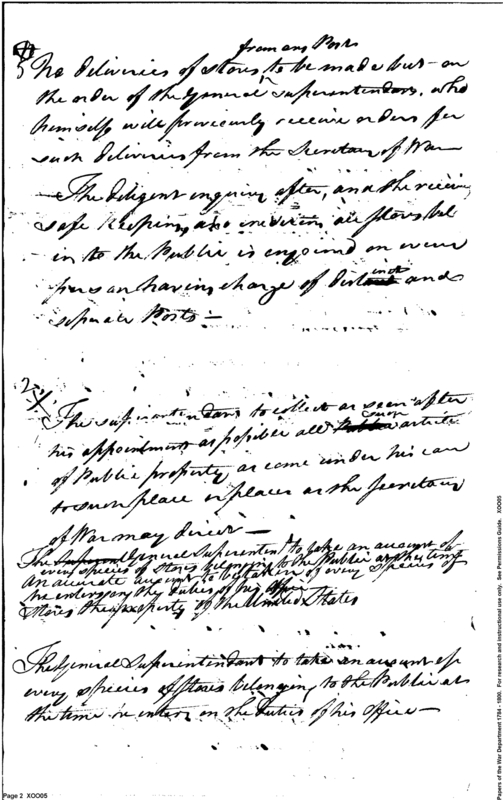 from any Posts
5 No deliveries of stores, to be made but on
the order of the General Superentendant, who
himself will previously receive orders for
such deliveries from the Secretary of War
The diligent enquiry after, and the receiving
safe Keeping, also all stores bel
in to the Public is enjoined on every
person having charge of distinct and
seperate Posts —
2
The superintendant to collect as soon after
his appointment as possible all such article
of Public property as come under his care
to such place or places as the Secretary
of War may direct —
The General Superentendt to take an account of
every species of stores belonging to the Public at the time
an accurate account to be taken of every species of
he enters on the duties of his office
stores the property of the United States
The General Superentendant to take an account of
every species of stores belonging to the Public at
the time he enters on the duties of his office —
Page 2 XOO05
Papers of the War Department 1784 - 1800. For research and instructional use only. See Permissions Guide. XOO05